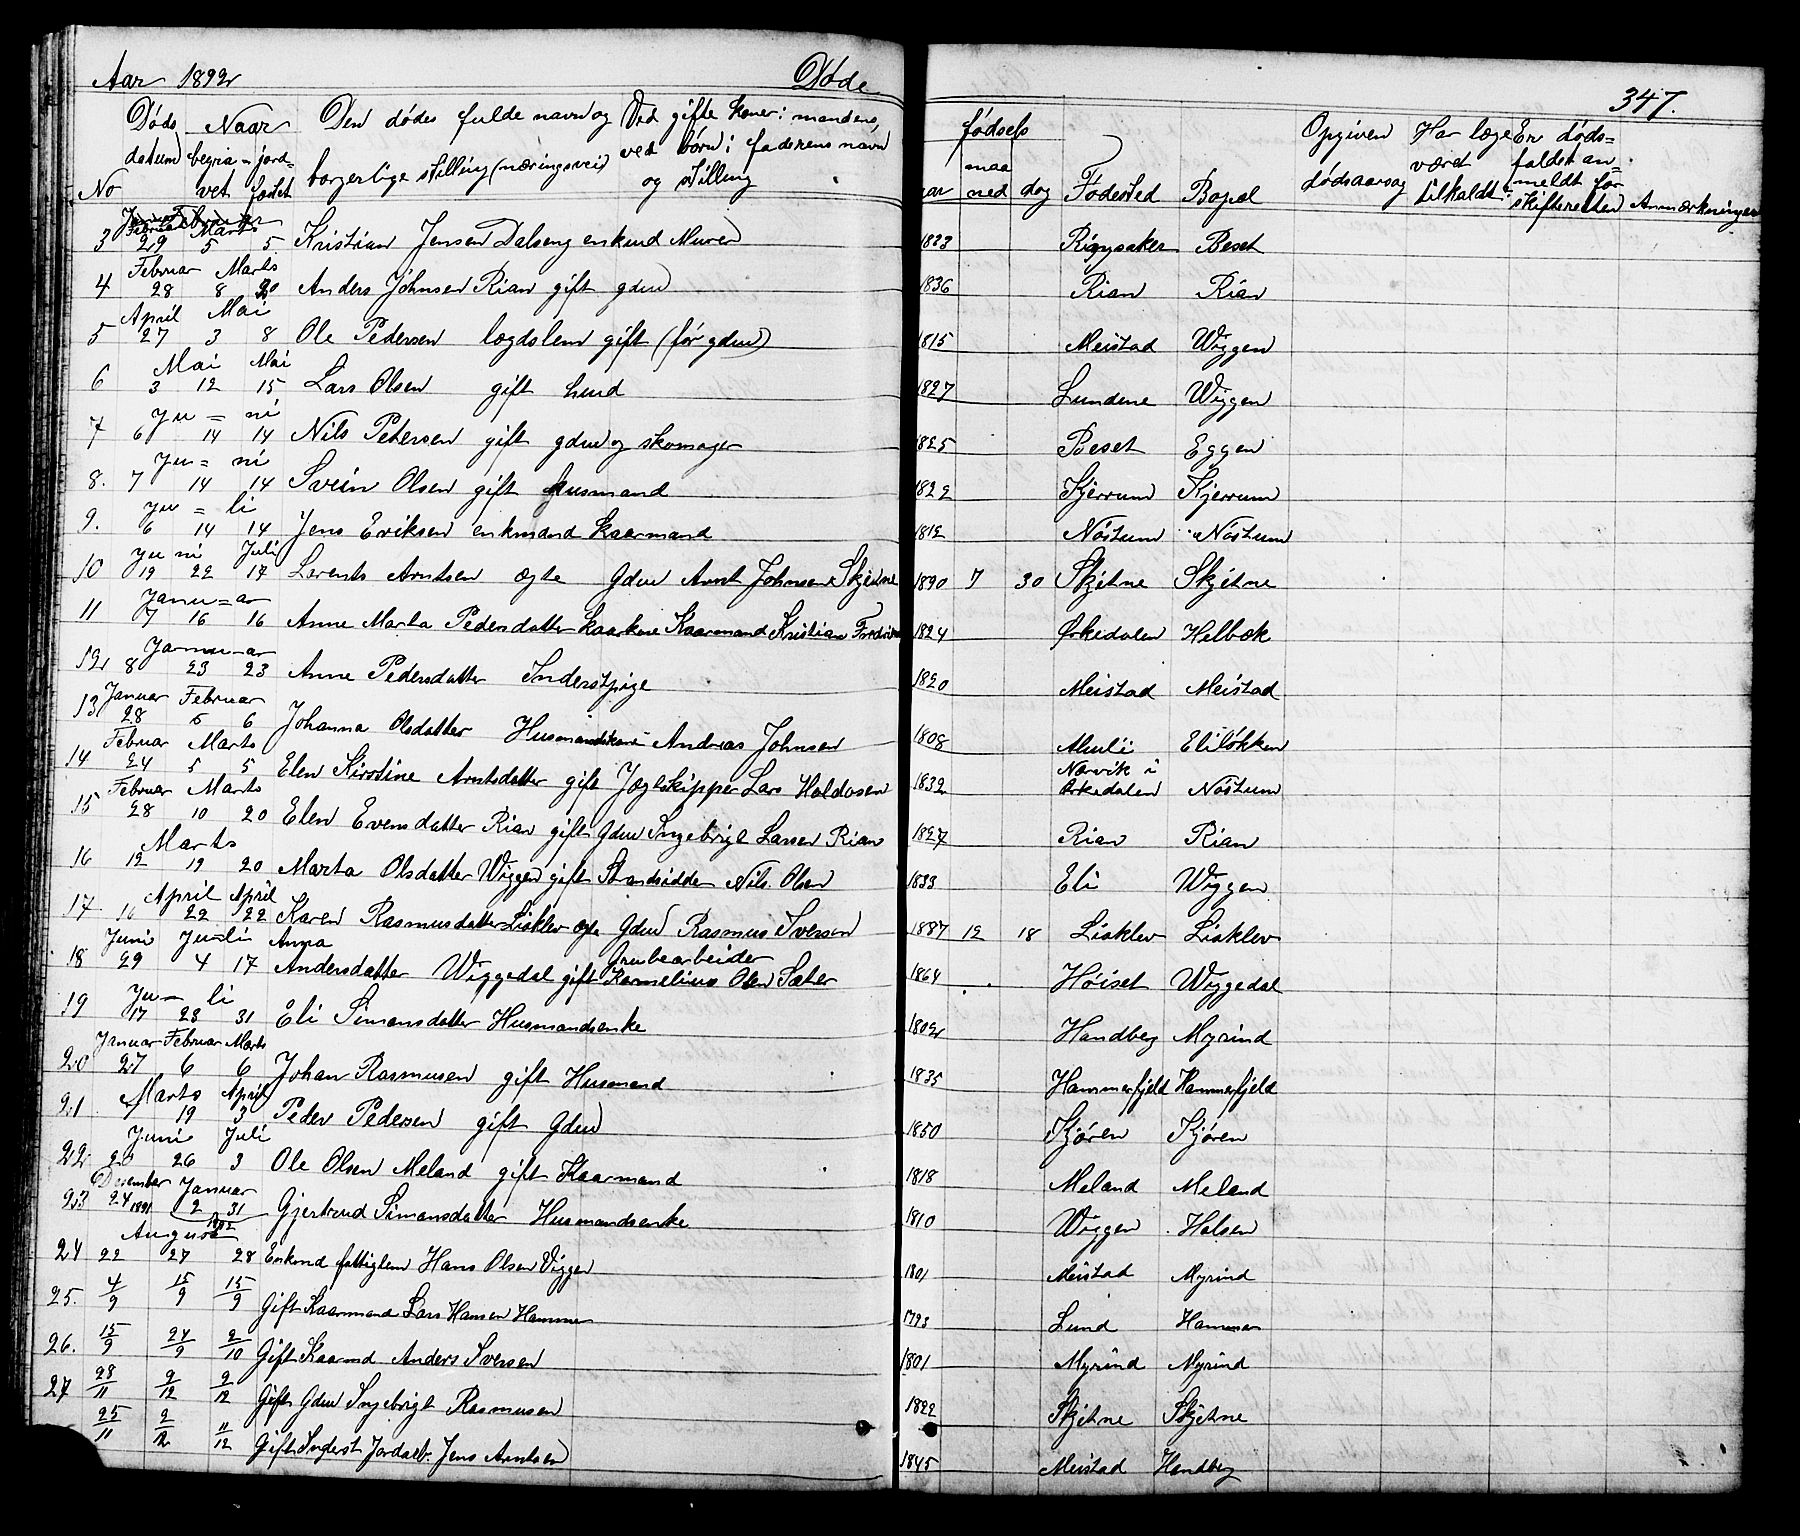 Aar 1892 Døde 347.
No Døds datum Naar begra=vet jord=festet Den dødes fulde navn og borgerlige stilling (næringsvei) Ved gifte koner: mandens, ved børn: faderens navn og stilling fødsels aar maaned dag Fødested Bopæl Opgiven dødsaarsag Har læge været tilkaldt? Er døds=faldet an=meldt for skifteretten Anmærkninger
Februar Marts
3 29 5 5 Kristian Jensen Dalseng enkmd Murer 1823 Ringsaker Beset
Februar Marts
4 28 8 20 Anders Johnsen Rian gift gdm 1836 Rian Rian
April Mai
5 27 3 8 Ole Pedersen lægdslem gift (før gdm) 1815 Meistad Wiggen
Mai Mai
6 3 12 15 Lars Olsen gift hmd 1827 Lundene Wiggen
Ju = ni
7 6 14 14 Nils Petersen gift gdm og skomager 1825 Beset Eggen
Ju = ni
8. 7 14 14 Svein Olsen gift husmand 1822 Kjerrum Kjerrum
Ju = li
9. 6 14 14 Jens Eriksen enkmand kaarmand 1812 Nóstum Nóstum
Ju ni Juli
10 19 22 17 Lorents Arntsen ægte Gdm Arnt Johnsen Skjetne 1890 7 30 Skjetne Skjetne
Janu = ar
11 7 16 16 Anne Marta Pedersdatter kaarkone Kaarmand Kristian 1824 Ørkedalen Helbæk
Janu-ar
12 8 23 23 Anne Pedersdatter Inderstpige 1820 Meistad Meistad
Januar Februar
13 28 6 6 Johanna Olsdatter Husmandskone Andreas Johnsen 1808 Eliløkken
Februar Marts
14 24 5 5 Elen Kirstine Arntsdatter gift Jægtskipper Lars Haldosen 1832 Nærvik i Orkedalen Nóstum
Februar Marts
15 28 10 20 Elen Evensdatter Rian gift Gdm Ingebrigt Larsen Rian 1827 Rian Rian
Marts
16 12 19 20 Marta Olsdatter Wiggen gift Strandsidder Nils Olsen 1833 Eli Wiggen
April April
17 16 22 22 Karen Rasmusdatter Lioklev ægte Gdm Rasmus Iversen 1887 12 18 Lioklev Lioklev
Juni Ju-li Anna Grubearbeider
18 29 4 17 Andersdatter Wiggedal gift Kornelius Olsen Sæter 1864 Høiset Wiggedal
Ju - li
19 17 23 31 Eli Simonsdatter Husmandsenke 1802 Handberg Myrind
Januar Februar Marts
20 27 6 6 Johan Rasmusen gift Husmand 1835 Hammerfjeld Hammerfjeld
Marts April
21 19 3 Peder Pedersen gift Gdm 1850 Kjøren Kjøren
Juni Juli
22 20 26 3 Ole Olsen Meland gift Kaarmand 1818 Meland Meland
Desember Januar
23 24 1891 2 31 1892 Gjertrud Simonsdatter Husmandsenke 1810 Wiggen Holsen
August
24 22 27 28 Enkmd fattiglem Hans Olsen Viggen 1801 Meistad Myrind
25. 4/9 15/9 15/9 Gift Kaarmand Lars Hansen Hammer 1793 Lund Hammer
26. 15/9 24/9 2/10 Gift Kaarmd Anders Iversen 1801 Myrind Myrind
27 28/11 9/12 9/12 Gift Gdm Ingebrigt Rasmusen 1822 Skjetne Skjetne
25/11 2/12 11/12 Gift Inderst Jordarb. Jens Arntsen 1845 Meistad Handberg